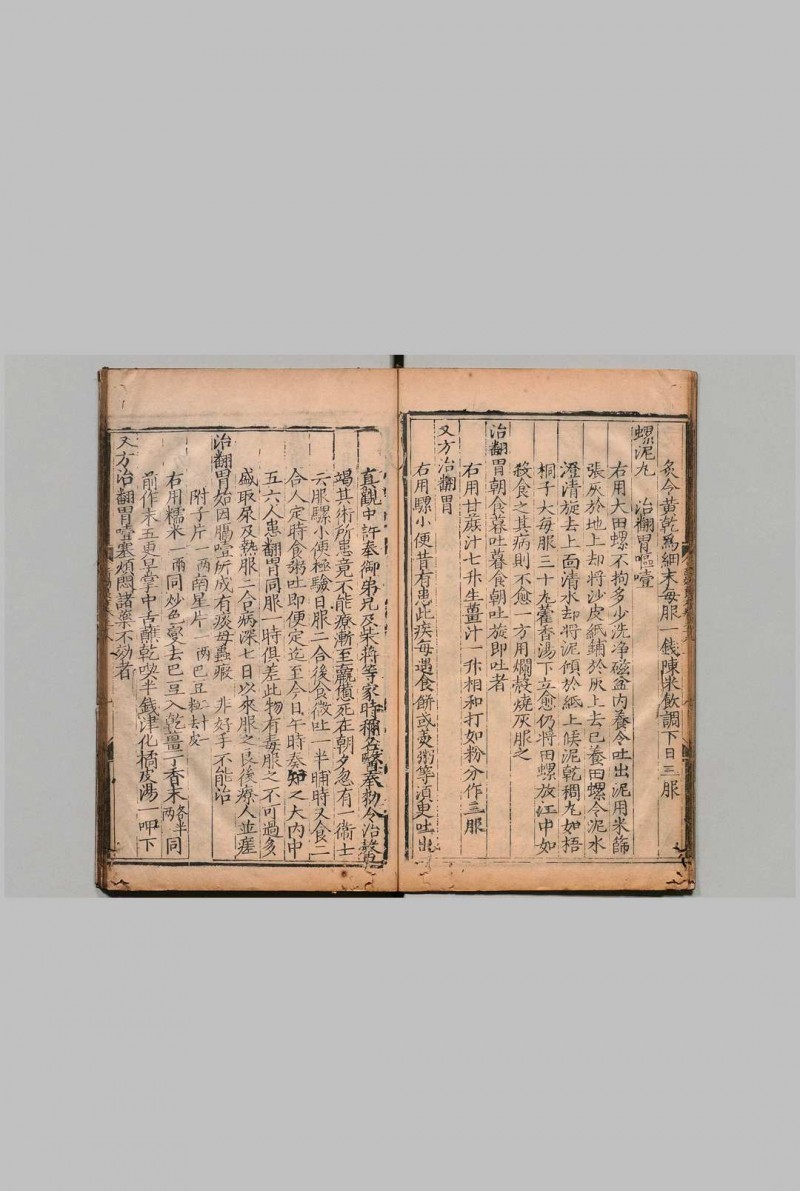 炙令黃乾爲細末每服一錢陳米飲調下日三服
螺泥丸 治翻胃嘔噎
右用大田螺不拘多少洗净磁盆内養令吐出泥用米篩
張灰於地上却將沙皮紙鋪於灰上去已養田螺令泥水
澄清旋去上面清水却將泥傾於紙上候泥乾稠丸如梧
桐子大每服三十丸藿香湯下立愈仍將田螺放江中如
殺食之其病則不愈一方用爛殼燒灰服之
治翻胃朝食暮吐暮食朝吐旋即吐者
右用甘蔗汁七升生薑汁一升相和打如粉分作三服
又方治翻胃
右用騾小便昔有患此疾每遇食餅或羮粥等湏更吐出
直觀中許奉御弟兄及柴蔣等家時稱名醫奉勑令治
竭其術所患竟不能療漸至羸憊死在朝夕忽有一術士
云服騾小便極驗日服二合後食微吐一半晡時又食二
合人定時食粥吐即便定迄至今日午時奏知之大内中
五六人患翻胃同服一時俱差此物有毒服之不可過多
盛取尿及熱服二合病深七日以來服之良後療人並瘥
治翻胃始因膈噎所成有痰毋蟲瘕 非好手不能治
附子片一兩南星片一兩巴豆粒去皮
右用糯米一兩同炒色變去巴豆入乾薑丁香末各半兩同
前作末五更早掌中舌蘸乾喫半錢津化橘皮湯一呷下
又方治翻胃噎塞煩悶諸藥不効者